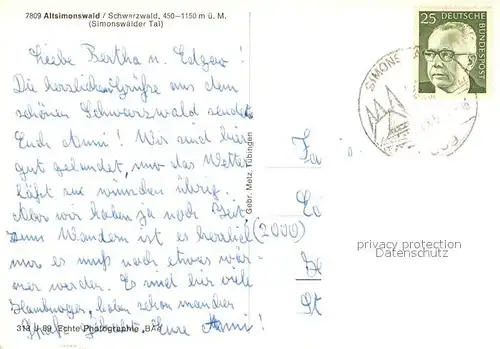 7809 Altsimonswald / Schwarzwald, 450–1150 m ü. M.
(Simonswälder Tal)
Liebe Bertha u. Edgar!
Die herzlichen Grüße aus dem
schönen Schwarzwald sendet
Euch Anni! Wir sind hier
gut gelandet, nur das Wetter
läßt zu wünschen übrig.
Aber wir haben ja noch Zeit.
Zum Wandern ist es herrlich
nur es muß noch etwas wär-
mer werden. Es sind hier viel
Hamburger, haben schon manchen
Eure Anni!
313 II 89 Echte Photographie
Gebr. Metz, Tübingen
25 DEUTSCHE
BUNDESPOST
SIMONS
Fa
(2000)
St
privacy protection
Datenschutz